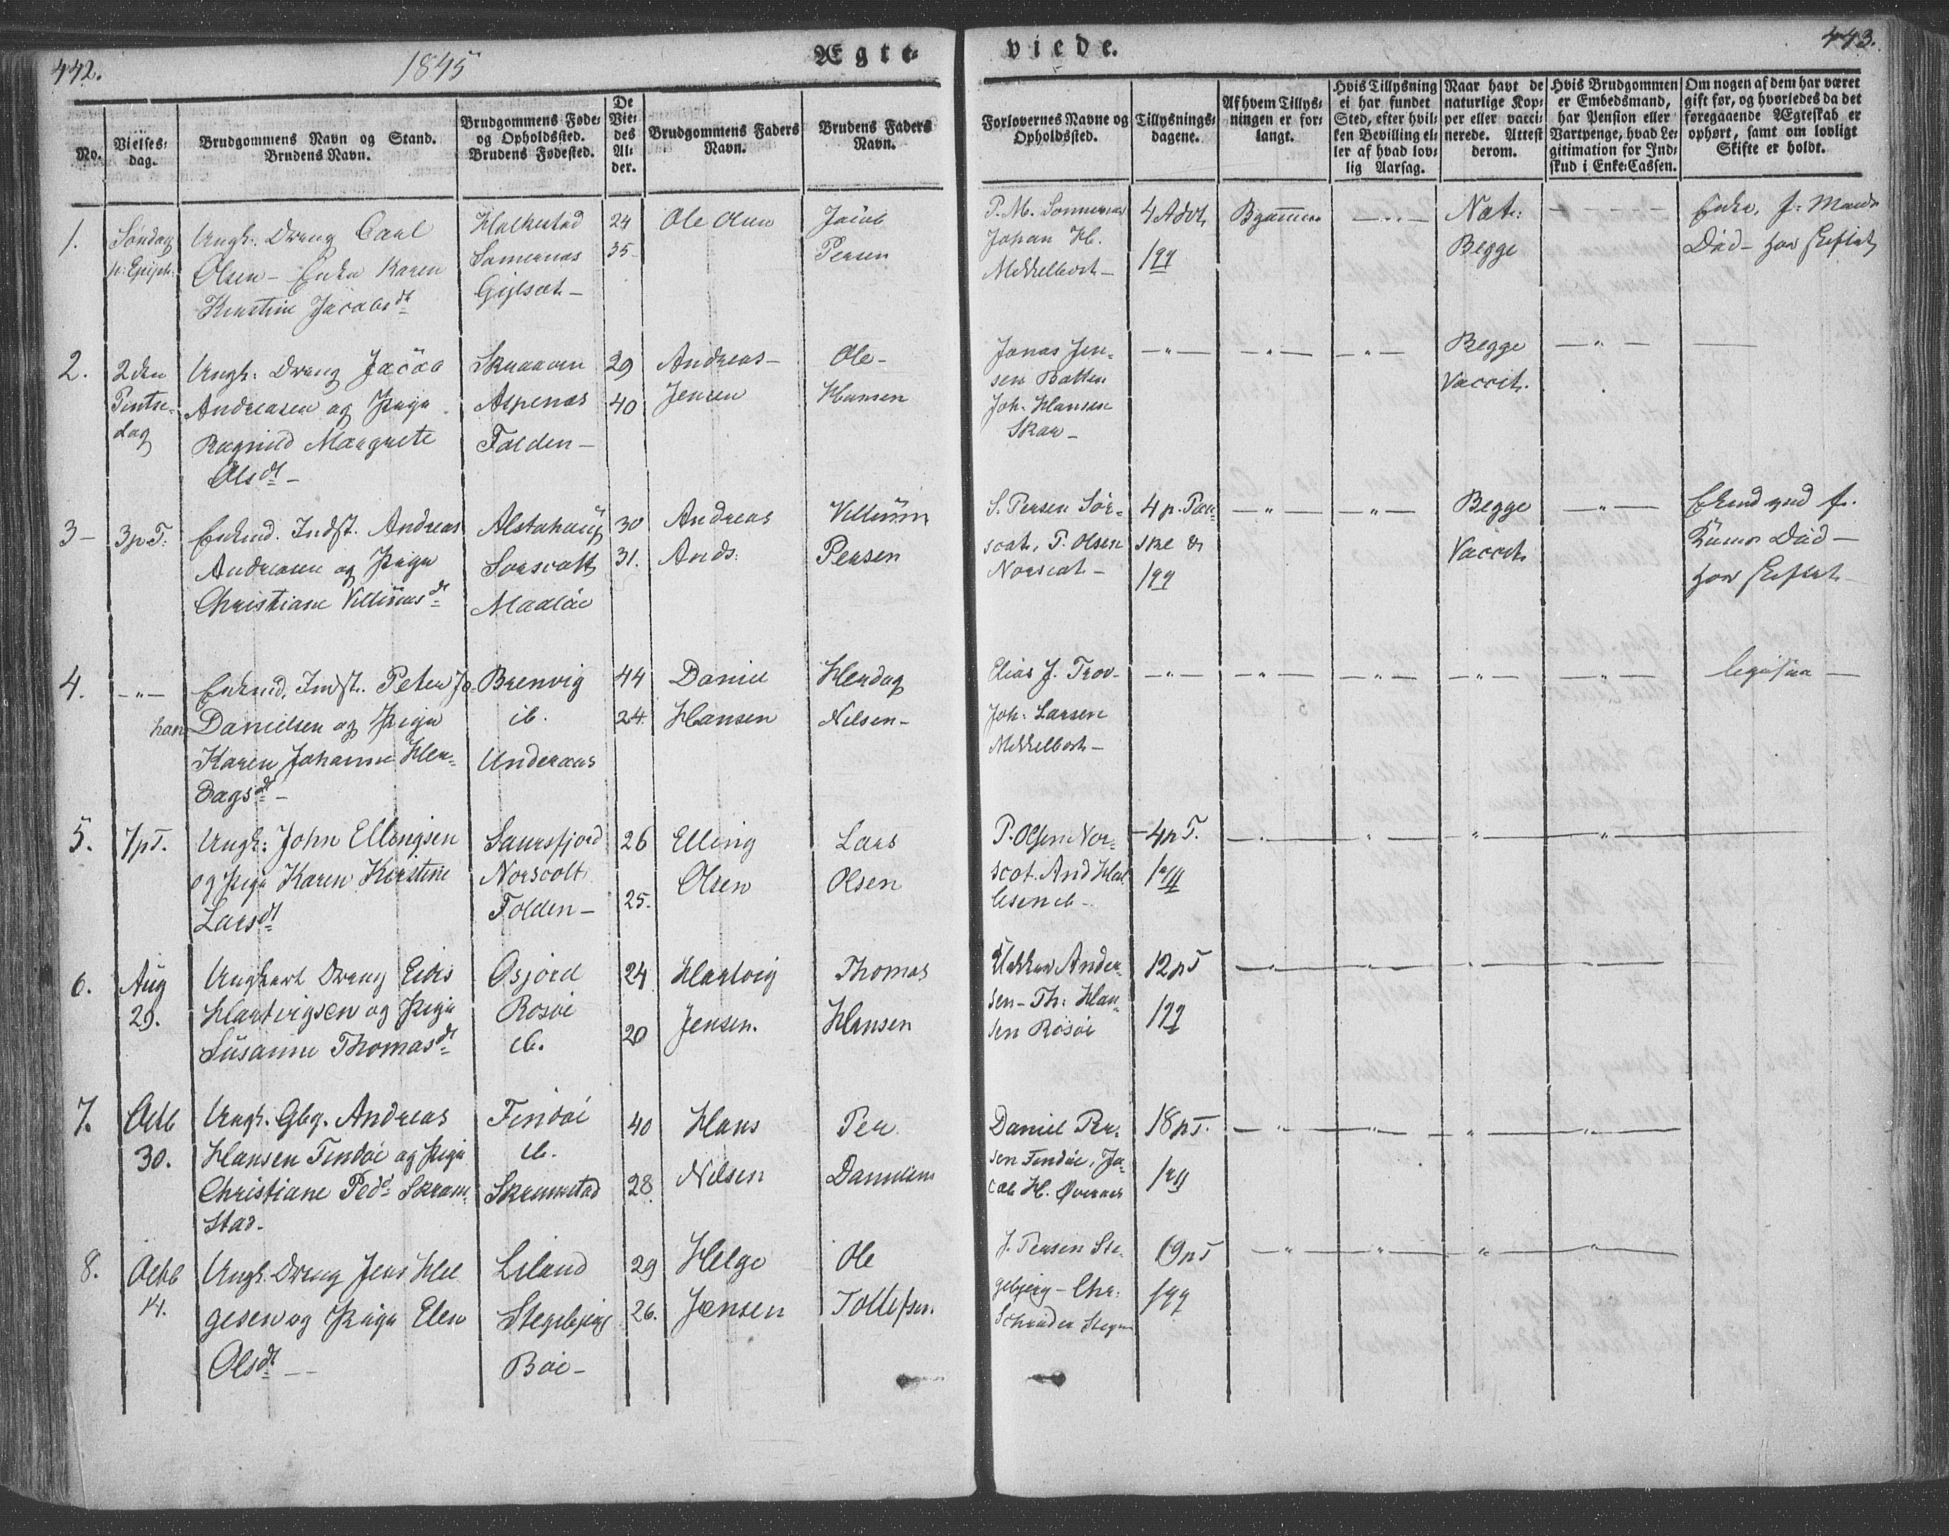 442.
1845
Ægte-
viede.
443.
No.
Vielses-
dag.
Brudgommens Navn og Stand.
Brudens Navn.
Brudgommens Føde-
og Opholdssted.
Brudens Fødested.
De
Vie-
des
Al-
der.
Brudgommens Faders
Navn.
Brudens Faders
Navn.
Forlovernes Navne og
Opholdssted.
Tillysnings-
dagene.
Af hvem Tillys-
ningen er for-
langt.
Hvis Tillysning
ei har fundet
Sted, efter hvil-
ken Bevilling el-
ler af hvad lov-
lig Aarsag.
Naar havt de
naturlige Kop-
per eller vacci-
nerede. Attest
derom.
Hvis Brudgommen
er Embedsmand,
har Pension eller
Vartpenge, hvad Le-
gitimation for Ind-
skud i Enke-Cassen.
Om nogen af dem har været
gift før, og hvorledes da det
foregaaende Ægteskab er
ophørt, samt om lovligt
Skifte er holdt.
1.
Søndag
p: Epiph:
Ungk: Dreng Carl
Olsen – Enke Karen
Kirstine Jacobsdt
Gylset –
24
35
Ole Olsen
Jacob
Persen
Johan H.
Mikkelbost –
4 Advt
Nat:
Begge
Enke, f: Mands
Død – har skiftet
2.
2den
Pintse-
dag
Ungk: Dreng Jacob
Andreasen og Piga
Ragnild Margrete
Olsdt –
Aspenæs
Folden –
29
40
Andreas –
Jensen
Ole –
Hansen
Jonas Jen-
sen Batten
Joh. Hansen
Skar –
– " –
– " –
– " –
Begge
Vaccit.
– " –
3 –
3 p T:
Enkmd. Indst. Andreas
Andreasen og Piga
Christiane Villumsdt
Alstahaug
30
31.
Andreas
Ands:
Villum
Persen
S. Persen Sör-
scat, P. Olsen
Norscat –
4 p. Paa-
ske &
– " –
– " –
Begge
Vaccit
– " –
Død –
har skiftet –
4.
– " –
Enkmd. Indst. Peter Jo-
han Danielsen og Piga
Karen Johanna Her-
dagsdt –
Brenvig
ib.
Underaas
44
24.
Daniel
Hansen
Herdag
Nilsen –
Elias J. Trov-
Joh: Larsen
Mikkelbost –
– " –
– " –
– " –
– " –
– " –
5.
7 p T.
Ungk: John Ellingsen
og Piga Karen Kirstine
Larsdt
Saursfjord
Norscott
Folden –
26
25.
Elling
Olsen
Lars
Olsen
P. Olsen Nor-
scot. And Hel
lesen ib –
4 p T.
6.
Aug
29.
Ungkarl Dreng Eilis
Hartvigsen og Piga
Susanne Thomasdt
Osjord
Rosøe
ib.
24
20
Hartvig
Jensen.
Thomas
Hansen
Ander-
sen – Th: Han-
sen Rosøe
12 p T
7.
Octb
30.
Ungk. Gbg. Andreas
Hansen Findøe og Piga
Christiane Pedd Skram-
stad.
Findøe
ib.
Skramstad
40
28
Hans
Nilsen
Per
Danielsen
Daniel Per-
sen Findøe, Ja-
cob H. Øvernes
18 p T.
8.
Octb
14.
Ungk. Dreng Jens Hel
gesen og Piga Elen
Olsdt –
Liland
Stegebjerg
Bøe –
29
26.
Helge
Jensen
Ole
Tollefsen.
J. Persen Ste-
gebjerg – Chr:
Schrøder Stegen
19 p T